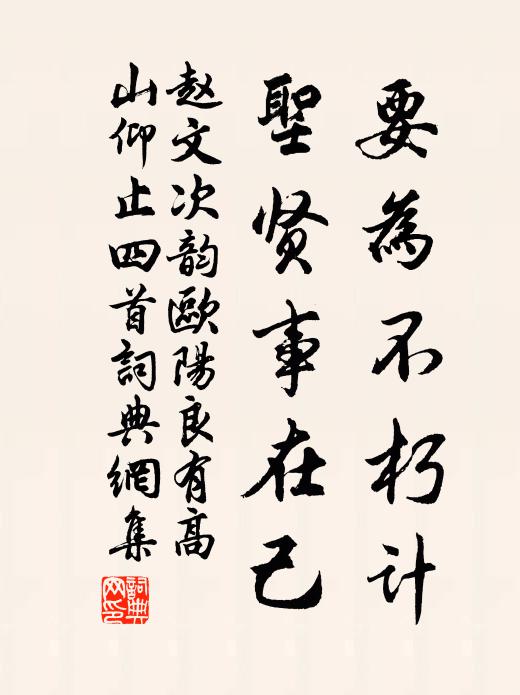 要為不朽计
聖贤事在己
赵文次韵歐陽良有高
山仰止四首詞典網集
詞典
网印